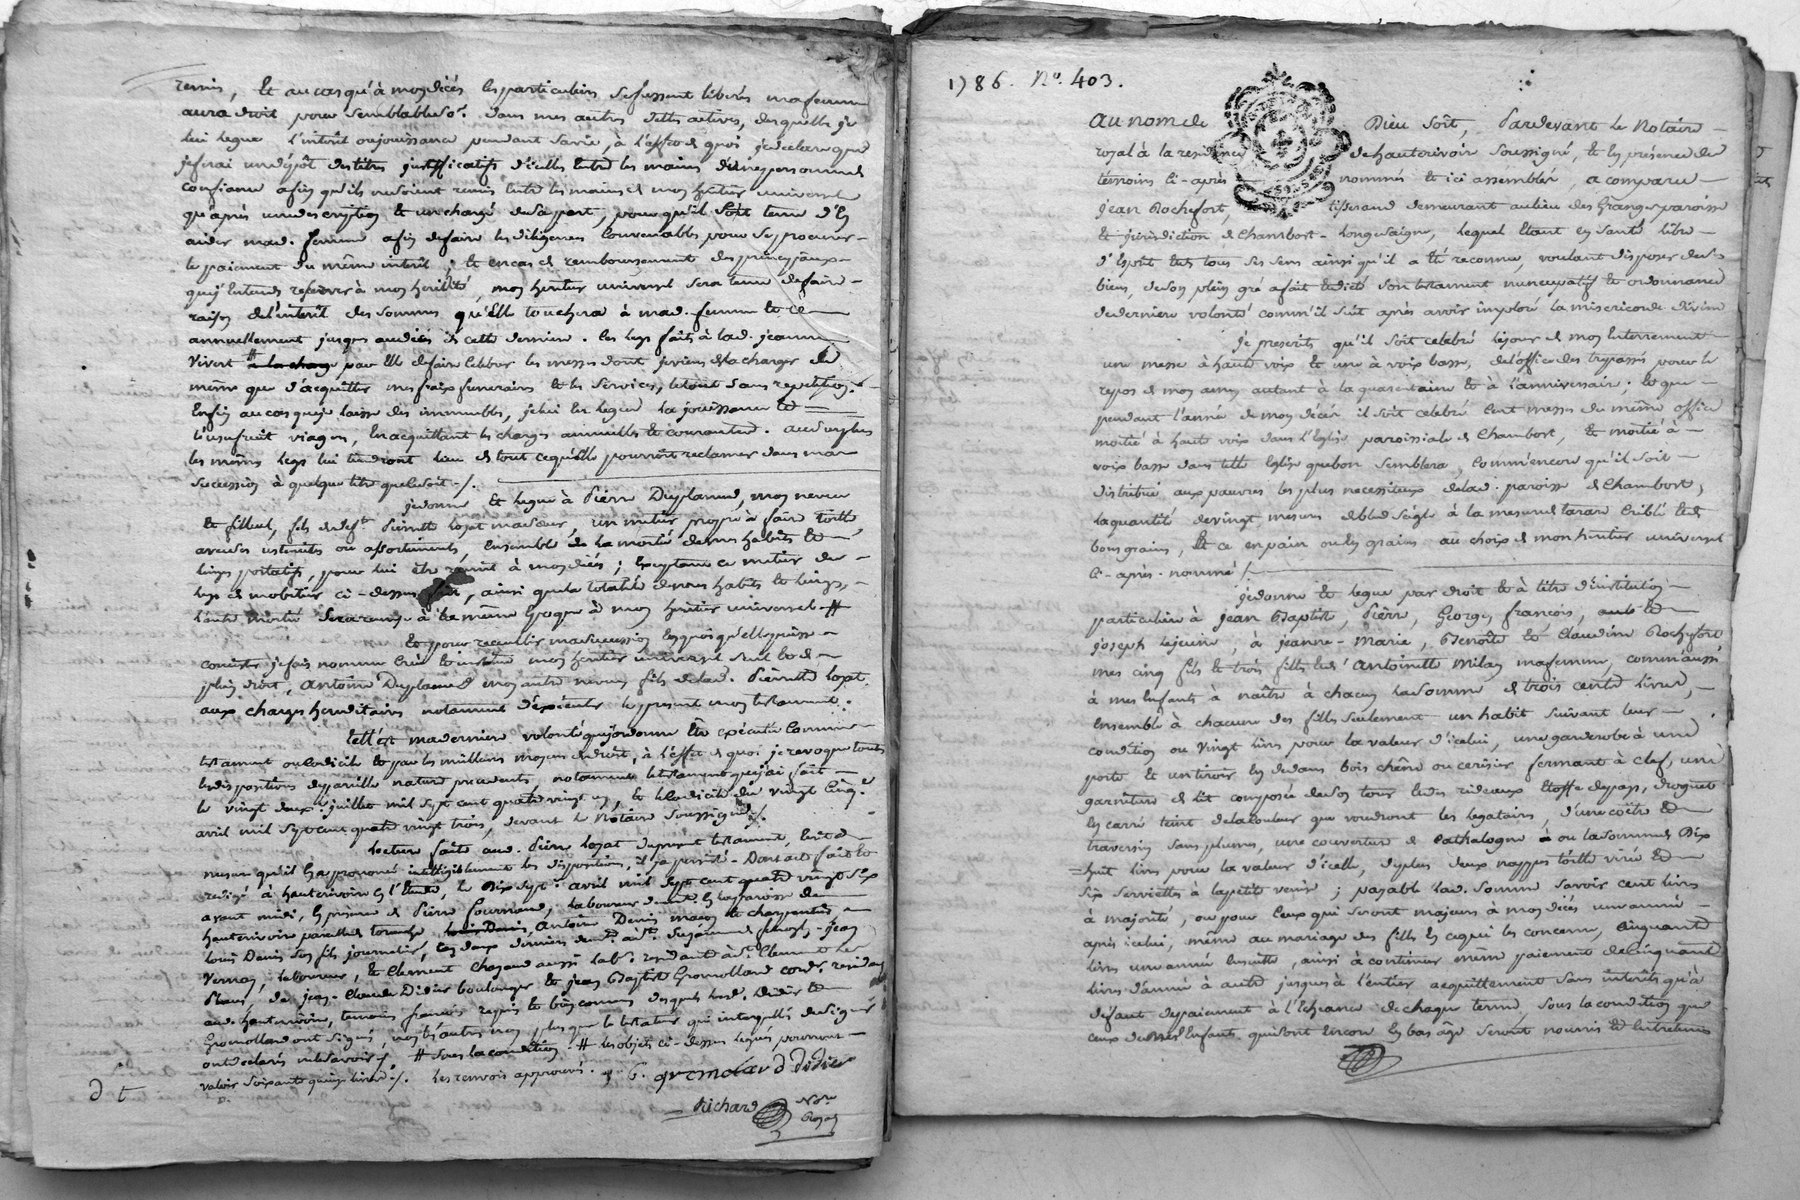 remis, Et au cas qu'à mon décès les particuliers se fussent libérés ma femme
aura droit pour semblable so.e dans mes autres dettes actives, desquelles je
lui legue l'intérêt ou jouissance pendant sa vie, à l'effet de quoi je declare que
je ferai un dépôt des titres justificatifs d'icelles entre les mains d'une personne de
confiance afin qu'ils ne soient remis entre les mains de mon héritier universel
qu'après une description Et un chargé de sa part, pour qu'il soit tenu d'en
aider mad. femme afin de faire les diligences convenables pour se procurer
le paiement du même intérêt ; Et en cas de remboursement des principaux
que j'entends réserver à mon héritier, mon héritier universel sera tenu de faire
raison de l'intérêt des sommes qu'elle touchera à mad. femme Et ce
annuellement jusques au décès de cette derniere. les legs faits à lad. jeanne
Vivert # a la charge par Elle de faire celebrer les messes dont je viens de la charger de
même que d'acquitter mes frais funeraires Et les services, le tout sans repetition.
Enfin au cas que je laisse des immeubles, je lui en legue la jouissance Et
l'usufruit viager, En acquittant les charges annuelles Et courantes. au surplus
les mêmes legs lui tiendront lieu de tout ce qu'elle pourroit reclamer dans ma
succession à quelque titre que ce soit ./.
je donne Et legue à Pierre Duplanud, mon neveu
Et filleul, fils de def.te Pierrette Lozat ma sœur, un métier propre à faire toille
avec ses ustensiles ou assortiments, Ensemble de la moitié de mes habits Et
linges portatifs, pour lui être remis à mon décès ; Excepté ce métier de
legs de mobilier ci-dessus fait, ainsi que la totalité de mes habits Et linges,
l'autre moitié sera remise à la même Epoque à mon héritier universel #
Et pour recueillir ma succession En quoi qu'elle puisse
consister je fais nomme Crée Et institue mon héritier universel seul Et de
plein droit, Antoine Duplanud mon autre neveu fils de lad. Pierrette Lozat.
aux charges héréditaires notamment d'exécuter le present mon testament.
telle est ma derniere volonté que j'ordonne être exécutée comme
testament ou codicile Et par les meilleurs moyens de droit, à l'effet de quoi je revoque toutes
les dispositions de pareille nature precedentes notamment le testament que j'ai fait
le vingt deux juillet mil sept cent quatre vingt un, Et le codicile du vingt cinq.e
avril mil sept cent quatre vingt trois, devant le Notaire soussigné ./.
lecture faite aud. Pierre Lozat du present testament, Ecrit à
mesure qu'il En a prononcé intelligiblement les dispositions, il y a persisté. Dont acte fait Et
redigé à hauterivoire En l'Etude, le dix sept.e avril mil sept cent quatre vingt six
avant midi, En presence de Pierre fournand, laboureur demeurant En la paroisse de
hauterivoire Antoine Denis maçon Et charpentier
Louis Denis son fils journalier, jean
Vernay, laboureur, Et Clement Chazaud aussi lab.r residant à St. Clement les
Places, de jean-Claude Didier boulanger Et jean Baptiste Gromolland cord.r residans
aud. hauterivoire, temoins françois requis Et bien connus desquels lesd. Didier Et
Gromolland ont signé, non les autres non plus que le testateur qui interpellés de signer
ont declaré ne le savoir ./. # sous la condition # les objets ci-dessus legués pourront
valoir soixante quinze livres ./. les renvois approuvés.
D t
Richard
No.re
Royal
1786. N.o 403.
Au nom de Dieu soit, Pardevant le Notaire
royal à la residence de hauterivoire soussigné, Et En présence des
temoins ci-après nommés Et ici assemblés, a comparu
jean Rochefort, tisserand demeurant au lieu des Granges paroisse
Et jurisdiction de Chambost-Longesaigne, lequel Etant En santé libre
d'Esprit Et de tous ses sens ainsi qu'il a été reconnu, voulant disposer de ses
biens, de son plein gré a fait Et dicté son testament nuncupatif Et ordonnance
de derniere volonté comm'il suit après avoir imploré la misericorde divine
je prescrits qu'il soit celebré le jour de mon Enterrement
une messe à haute voix Et une à voix basse, de l'office des trepassés pour le
repos de mon ame, autant à la quarantaine Et à l'anniversaire ; Et que
pendant l'année de mon décès il soit celebré cent messes du même office
moitié à haute voix dans l'Eglise paroissiale de Chambost, Et moitié à
voix basse dans telle Eglise que bon semblera, Comm'encore qu'il soit
distribué aux pauvres les plus necessiteux de lad. paroisse de Chambost,
la quantité de vingt mesures de bled seigle à la mesure de tarare criblé Et de
bons grains, Et ce en pain ou En grains au choix de mon héritier universel
ci-après nommé /.
je donne Et legue par droit Et à titre d'institution
particuliere à jean Baptiste, Pierre, George, françois, Et
joseph le jeune, à jeanne-Marie, Benoîte Et Claudine Rochefort
mes cinq fils Et trois filles Et d'Antoinette Milan ma femme, comm'aussi
à mes Enfants à naître à chacun la somme de trois cents livres,
Ensemble à chacune des filles seulement un habit suivant leur
condition ou vingt livres pour la valeur d'icelui, une garderobe à une
porte Et un tiroir En dedans bois chêne ou cerisier fermant à clef, une
garniture de lit composée de son tour Et des rideaux Etoffe de pays, droguet
En carré teint de la couleur que voudront les legataires, d'une coître Et
traversin sans plumes, une couverture de cathalogne ou la somme de Dix
=huit livres pour la valeur d'icelle, de plus deux nappes toille virée Et
six serviettes à la petite venise ; payable lad. somme savoir cent livres
à majorité, ou pour ceux qui seront majeurs à mon décès une année
après icelui, même au mariage des filles En ce qui les concerne, cinquante
livres une année Ensuite, ainsi à continuer même paiement de cinquante
livres d'année à autre jusques à l'entier acquittement sans intérêts qu'à
defaut de paiement à l'Echeance de chaque terme, sous la condition que
ceux de mesd. Enfants qui sont Encore En bas âge seront nourris Et Entretenus